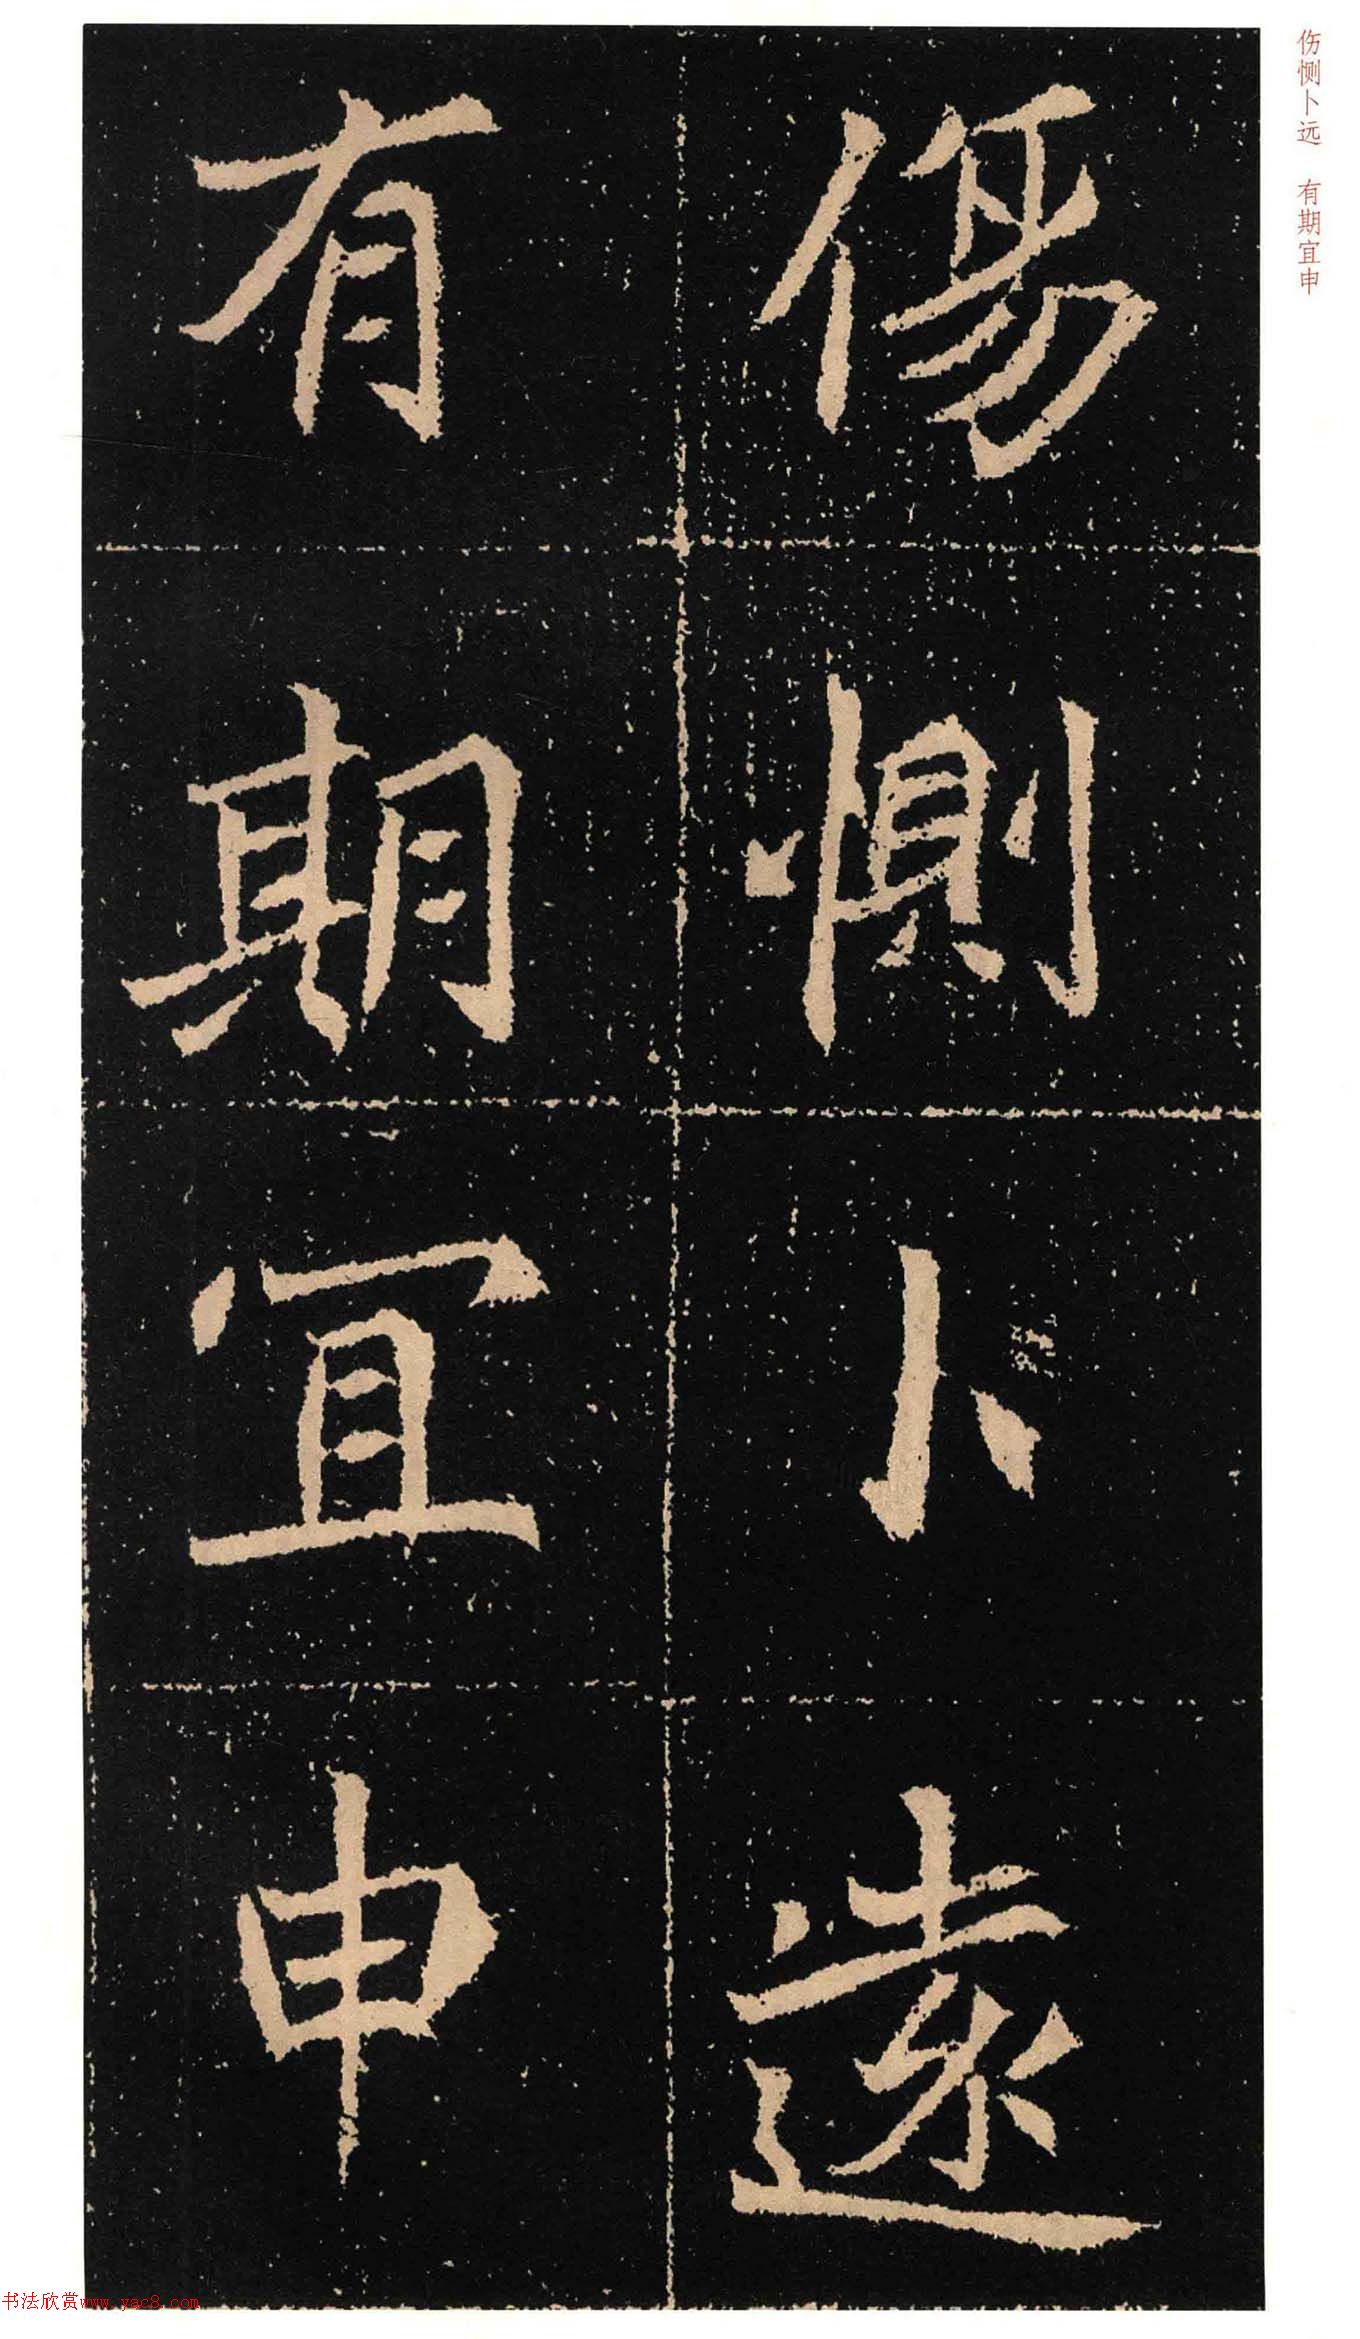 伤恻卜远　有期宜申
傷惻卜遠
有期宜申
书法欣赏www.yac8.com